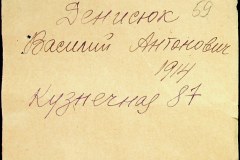 Денисюк 69
Василий Антонович
1914
Кузнечная 87